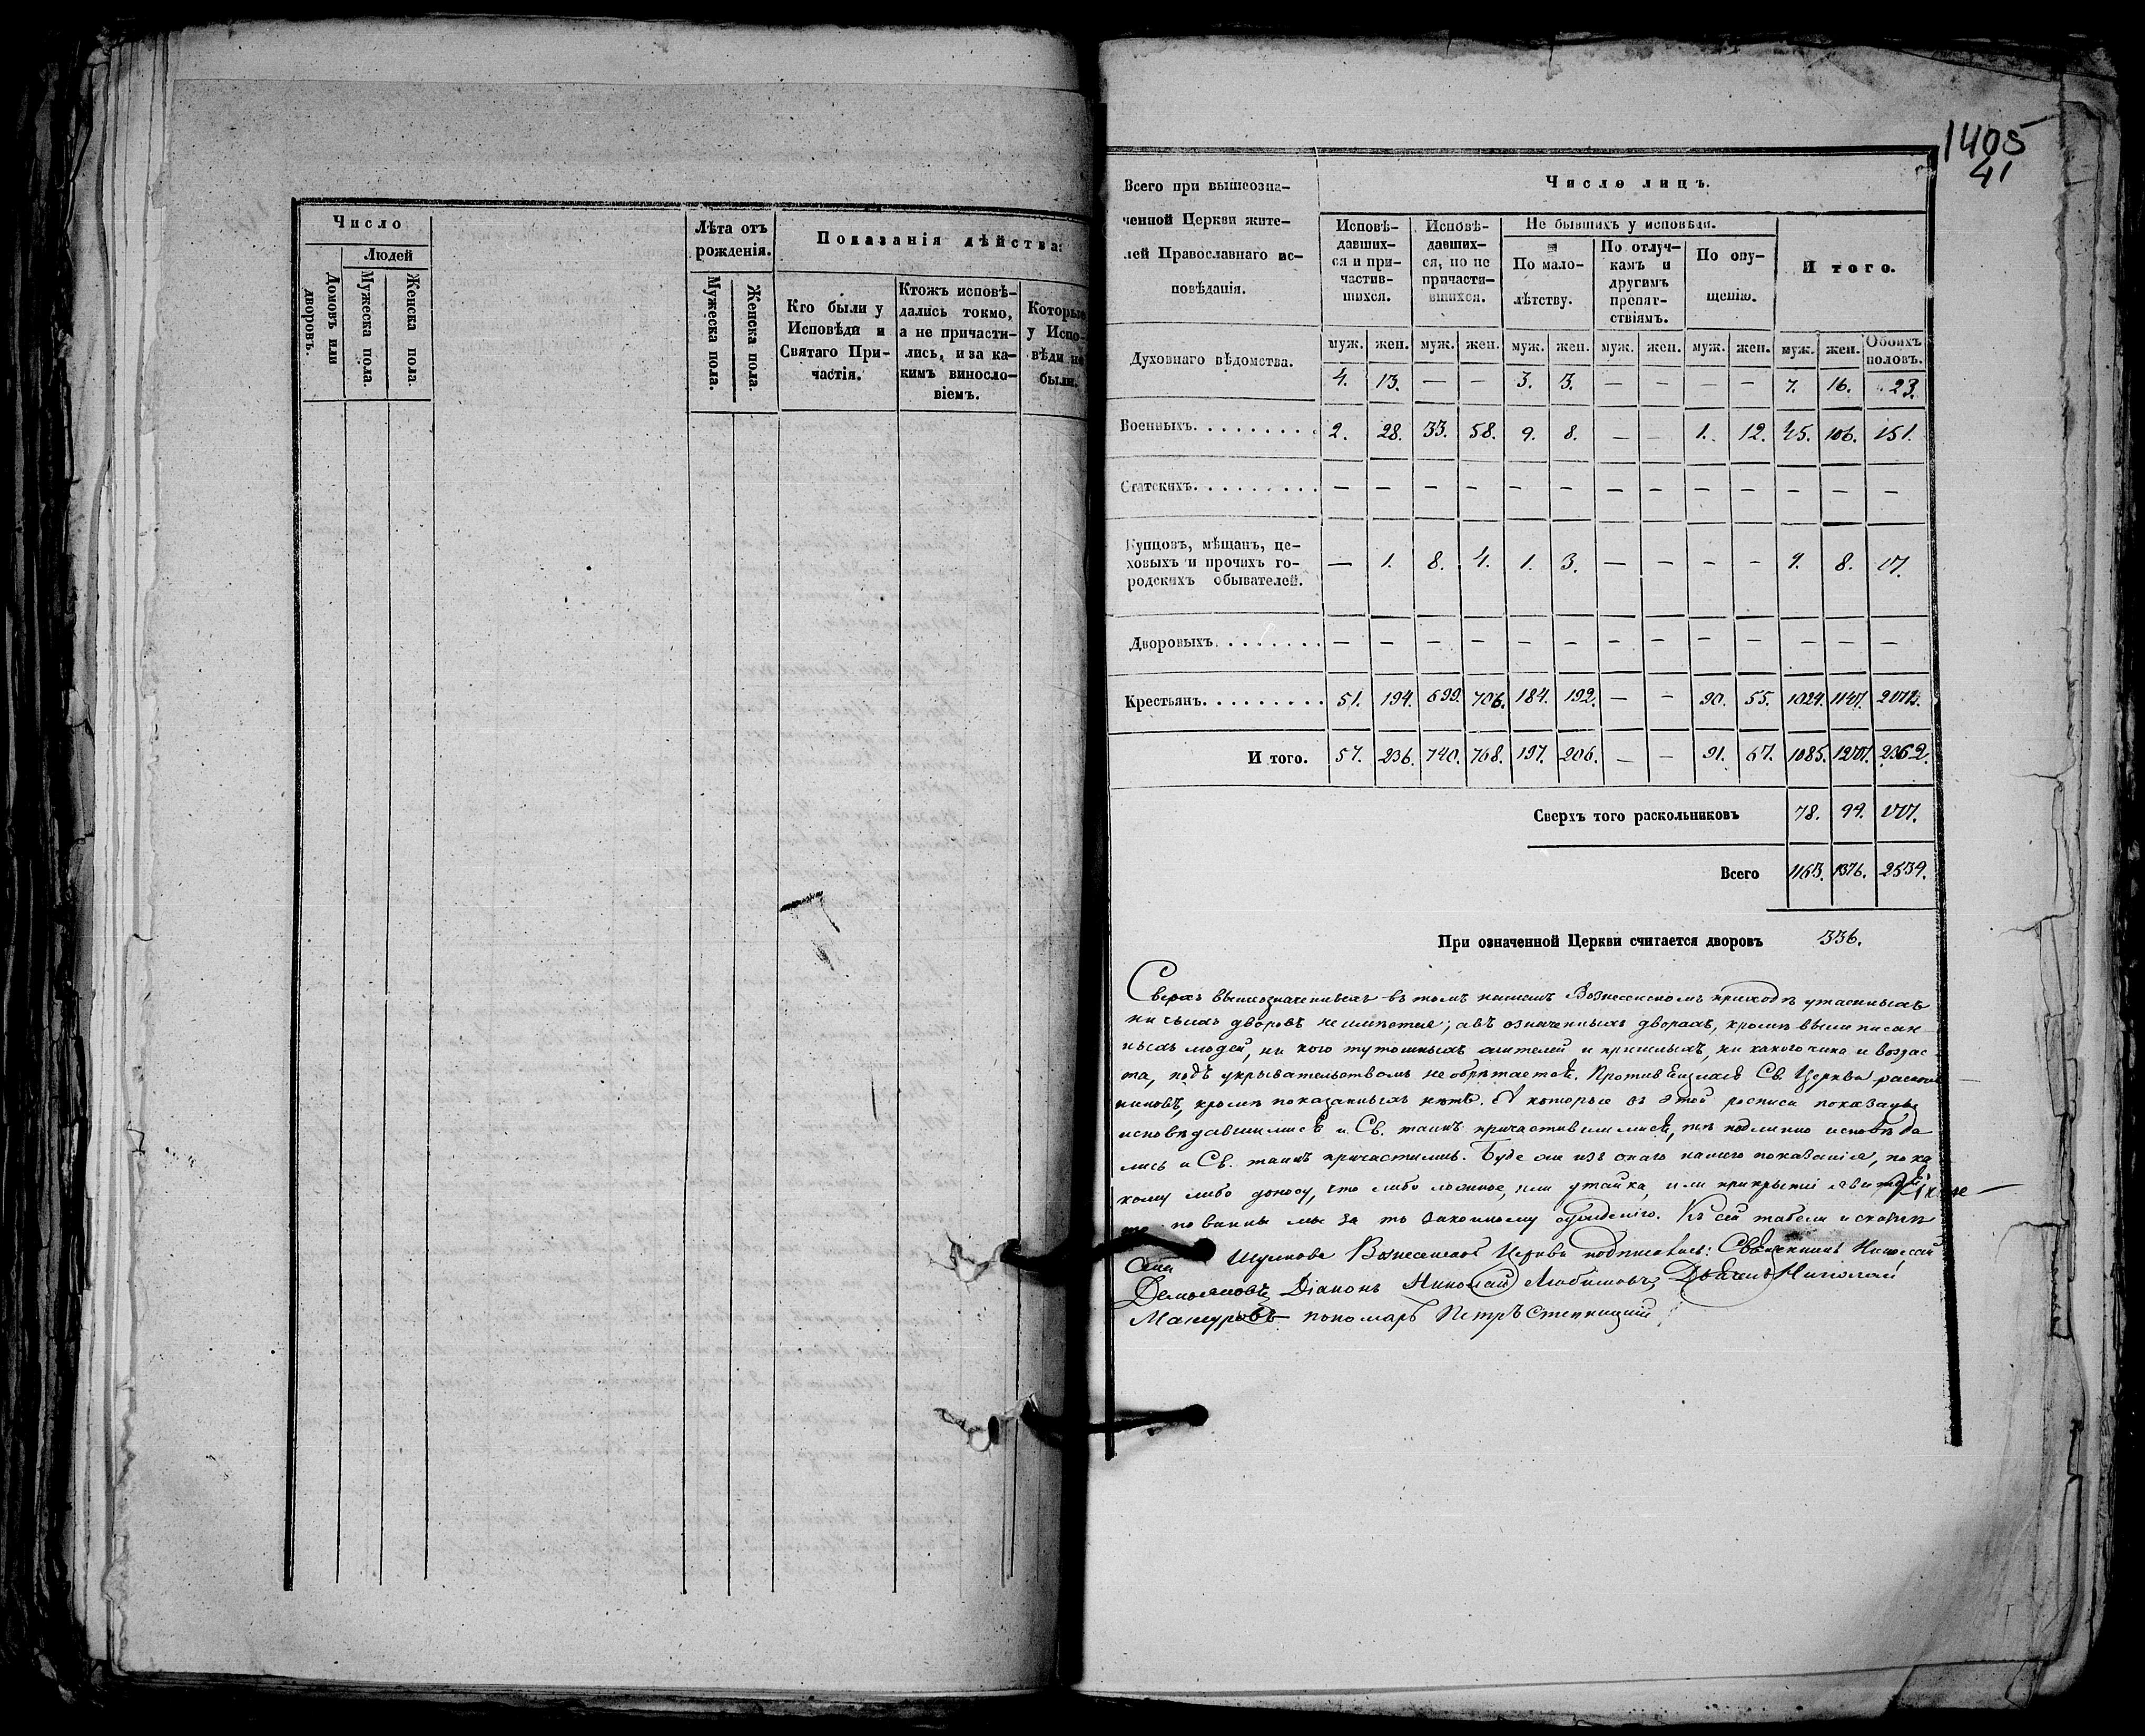 Число
Людей
Домовъ или дворовъ.
Мужеска пола.
Женска пола.
Лѣта отъ
рожденія.
Мужеска пола.
Женска пола.
Показанія дѣйства:
Кто были у
Исповѣди и
Святаго При-
частія.
Ктожъ исповѣ-
дались токмо,
а не причасти-
лись, и за ка-
кимъ виносло-
віемъ.
Которые
у Испо-
вѣди не
были.
1405
41
Всего при вышеозна-
ченной Церкви жите-
лей Православнаго ис-
повѣданія.
Число лицъ.
Исповѣ-
давших-
ся и при-
частив-
шихся.
Исповѣ-
давших-
ся, но не
причасти-
вшихся.
Не бывшихъ у исповѣди.
По мало-
лѣтству.
По отлуч-
камъ и
другимъ
препят-
ствіямъ.
По опу-
щенію.
Итого.
муж. жен. муж. жен. муж. жен. муж. жен. муж. жен. муж. жен. Обоихъ половъ.
Духовнаго вѣдомства. 4. 13. — — 3. 3. — — — — 7. 16. 23.
Военныхъ. 2. 28. 33. 58. 9. 8. — — 1. 12. 45. 106. 151.
Статскихъ. — — — — — — — — — — — — —
Купцовъ, мѣщанъ, це-
ховыхъ и прочихъ го-
родскихъ обывателей. — 1. 8. 4. 1. 3. — — — — 9. 8. 17.
Дворовыхъ. — — — — — — — — — — — — —
Крестьянъ. 51. 194. 699. 706. 184. 192. — — 90. 55. 1024. 1147. 2171.
Итого. 57. 236. 740. 768. 197. 206. — — 91. 67. 1085. 1277. 2362.
Сверхъ того раскольниковъ 78. 99. 177.
Всего 1163. 1376. 2539.
При означенной Церкви считается дворовъ 336.
Сверхъ вышеозначенныхъ въ томъ нашемъ Вознесенскомъ приходѣ утаенныхъ
ни чьихъ дворовъ не имѣется; а въ означенныхъ дворахъ, кромѣ выше писан
ныхъ людей, ни кого тутошныхъ жителей и пришлыхъ, ни какого чина и возрас
та, подъ укрывательствомъ не обрѣтается. Противъ Св. Церкви раскол
никовъ, кромѣ показанныхъ нѣтъ. А которые въ этой росписи показаны
исповѣдавшимисъ и Св. таинъ причастившимисъ, тѣ подлинно исповѣда
лись и Св. таинъ причастились. Буде же изъ онаго нашего показанія, по ка
кому либо доносу, что либо ложное, или утайка, или прикрытіе явится
то повинны мы за то законному сужденію. Къ сей табели
Вознесенской Церкви подписались: Священникъ
Діаконъ Николай Любимовъ, Николай
пономарь Петръ